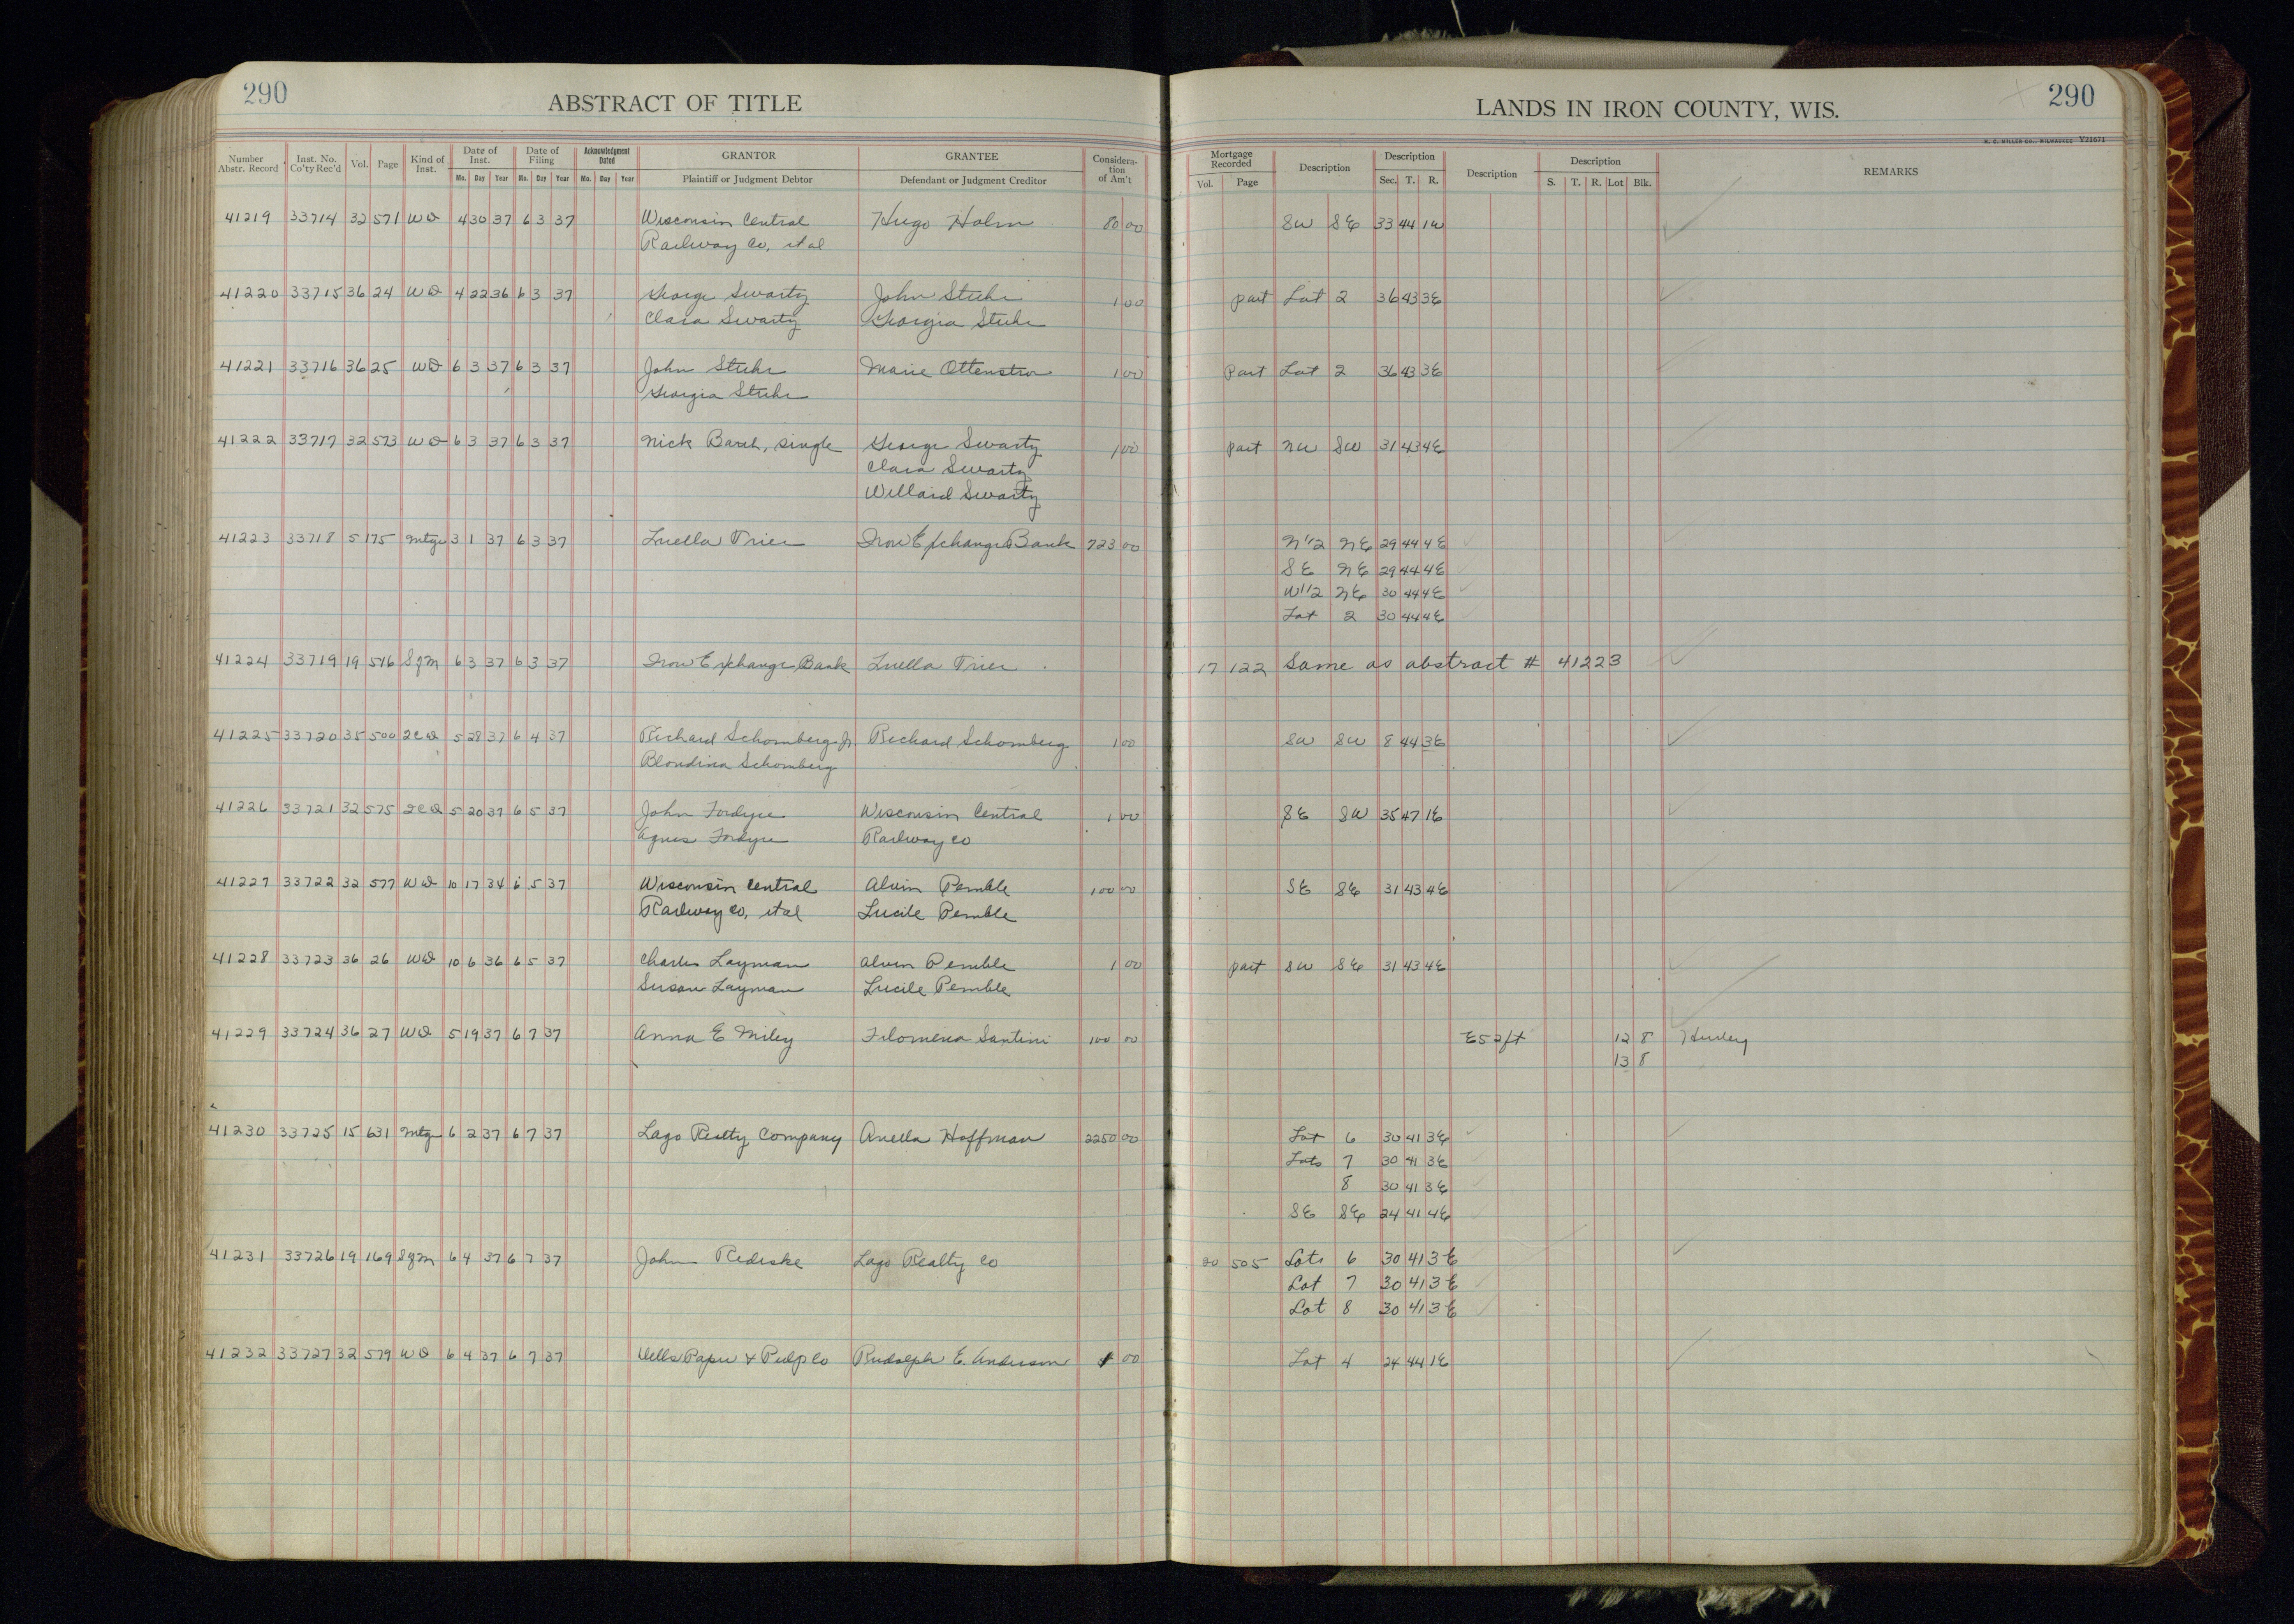 290
ABSTRACT OF TITLE
Number Abstr. Record Inst. No. Co'ty Rec'd Vol. Page Kind of Inst. Date of Inst. Mo. Day Year Date of Filing Mo. Day Year Acknowledgment Dated Mo. Day Year GRANTOR Plaintiff or Judgment Debtor GRANTEE Defendant or Judgment Creditor Considera-tion of Am't
LANDS IN IRON COUNTY, WIS.
290
H. C. MILLER CO., MILWAUKEE Y21671
Mortgage Recorded Vol. Page Description Description Sec. T. R. Description Description S. T. R. Lot Blk. REMARKS
41219 33714 32 571 WD 4 30 37 6 3 37 Wisconsin Central Hugo Holm 80 00 SW SE 33 44 1W
Railway Co, et al
41220 33715 36 24 WD 4 22 36 6 3 37 George Swartz John Stuhr 1 00 part Lot 2 36 43 3E
Clara Swartz Georgia Stuhr
41221 33716 36 25 WD 6 3 37 6 3 37 John Stuhr Marie 1 00 Part Lot 2 36 43 3E
Georgia Stuhr
41222 33717 32 573 WD 6 3 37 6 3 37 Nick , single George Swartz 1 00 part NW SW 31 43 4E
Clara Swartz
Willard Swartz
41223 33718 5 175 Mtge 3 1 37 6 3 37 Luella Trier Iron Exchange Bank 723 00 N1/2 NE 29 44 4E
SE NE 29 44 4E
W1/2 NE 30 44 4E
Lot 2 30 44 4E
41224 33719 19 516 Sgm 6 3 37 6 3 37 Iron Exchange Bank Luella Trier 17 122 Same as abstract # 41223
41225 33720 35 500 2CD 5 28 37 6 4 37 Richard Schomberg Jr. Richard Schomberg 1 00 SW SW 8 44 3E
Blondina Schomberg
41226 33721 32 575 2CD 5 20 37 6 5 37 John Fordyce Wisconsin Central 1 00 SE SW 35 47 1E
Agnes Fordyce Railway Co
41227 33722 32 577 WD 10 17 34 6 5 37 Wisconsin Central Alvin Pemble 100 00 SE SE 31 43 4E
Railway Co, et al Lucile Pemble
41228 33723 36 26 WD 10 6 36 6 5 37 Charles Layman Alvin Pemble 1 00 part SW SE 31 43 4E
Susan Layman Lucile Pemble
41229 33724 36 27 WD 5 19 37 6 7 37 Anna E Miley Filomena Santini 100 00 E52ft 12 8 Hurley
13 8
41230 33725 15 631 Mtge 6 2 37 6 7 37 Lago Realty Company Hoffman 2250 00 Lot 6 30 41 3E
Lots 7 30 41 3E
8 30 41 3E
SE SE 24 41 4E
41231 33726 19 169 Sgm 6 4 37 6 7 37 John Rediske Lago Realty Co 20 505 Lots 6 30 41 3E
Lot 7 30 41 3E
Lot 8 30 41 3E
41232 33727 32 579 WD 6 4 37 6 7 37 Wells Paper & Pulp Co Rudolph E. Anderson 1 00 Lot 4 24 44 1E